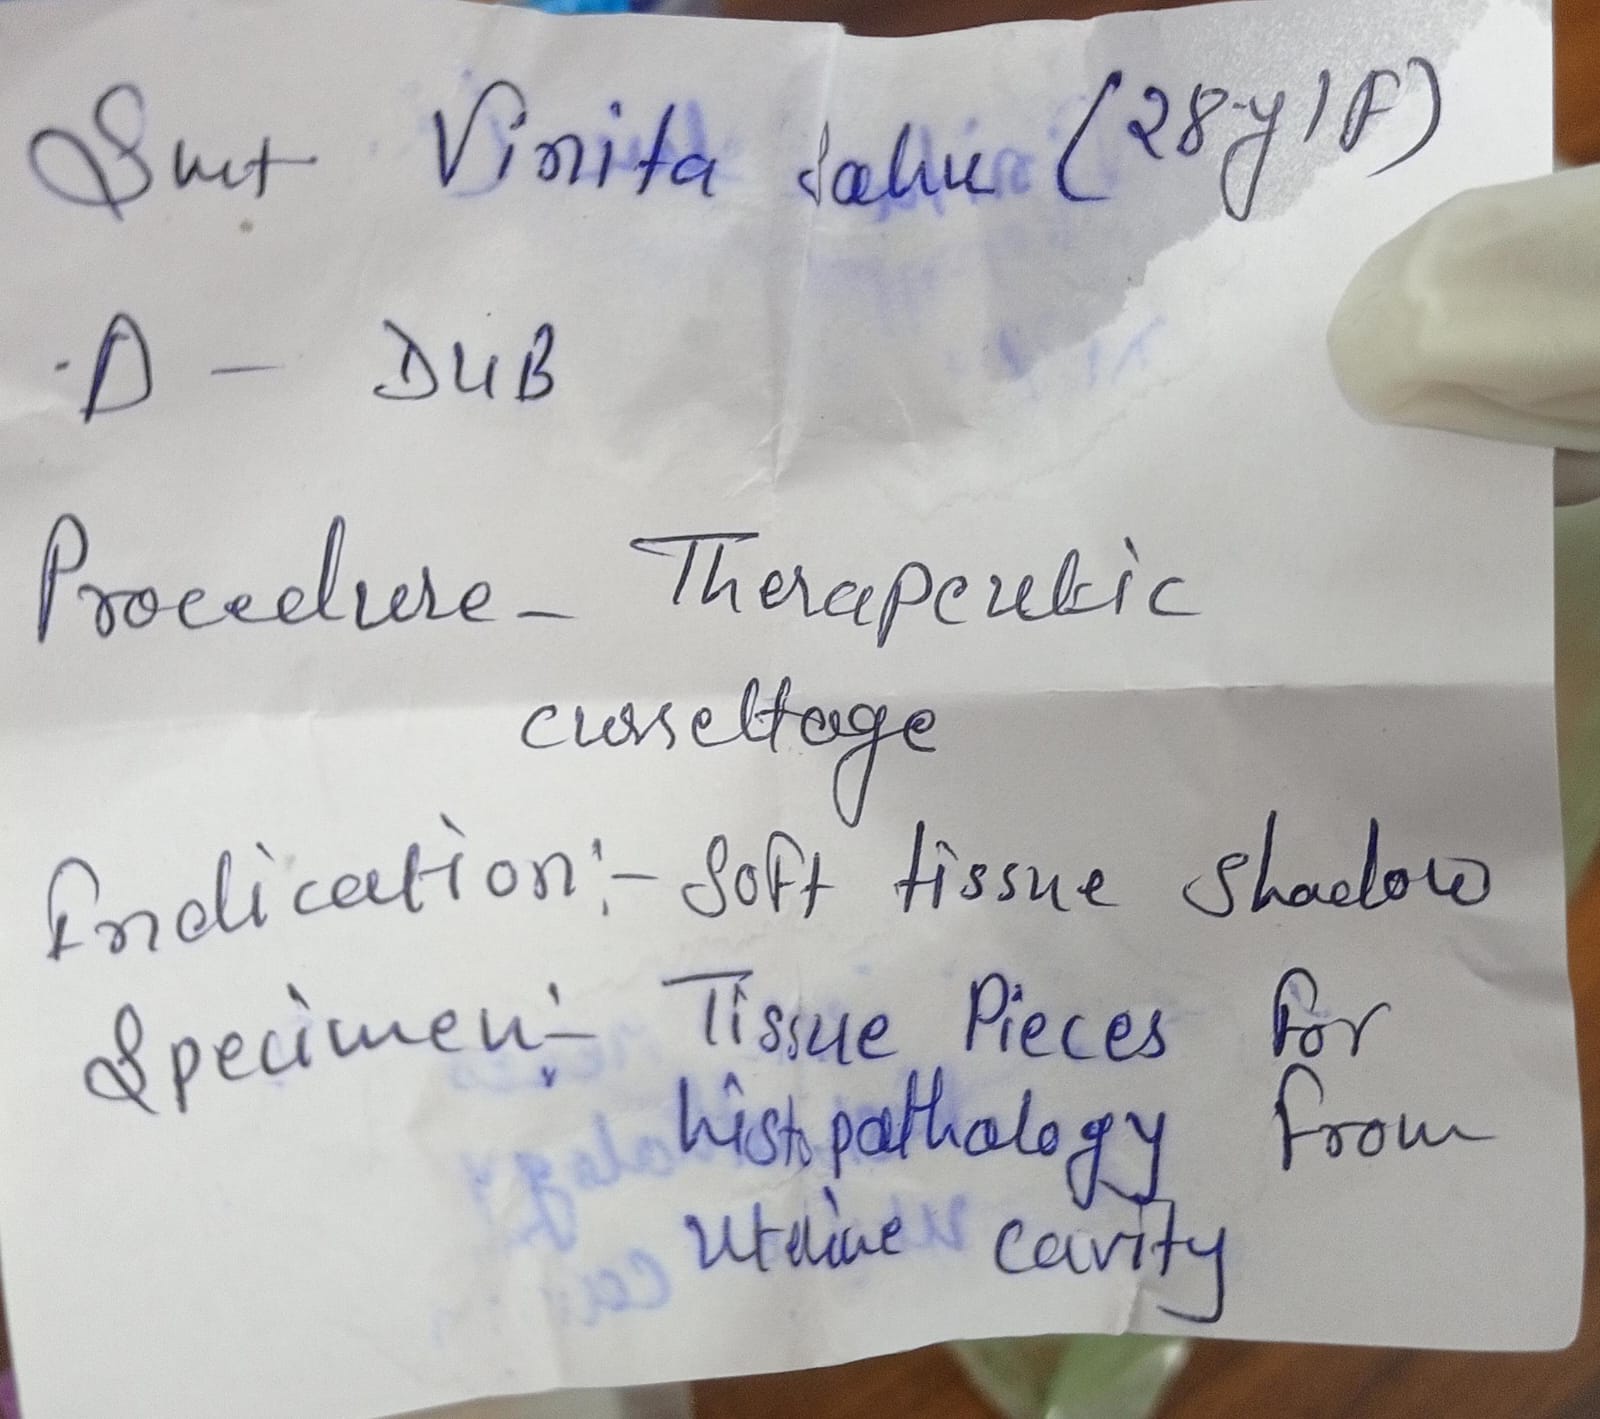 Smt Vinita Sahu (28y/F)
D - DUB
Procedure - Therapeutic
curettage
Indication:- Soft tissue shadow
Specimen:- Tissue Pieces for
histopathology from
uterine cavity